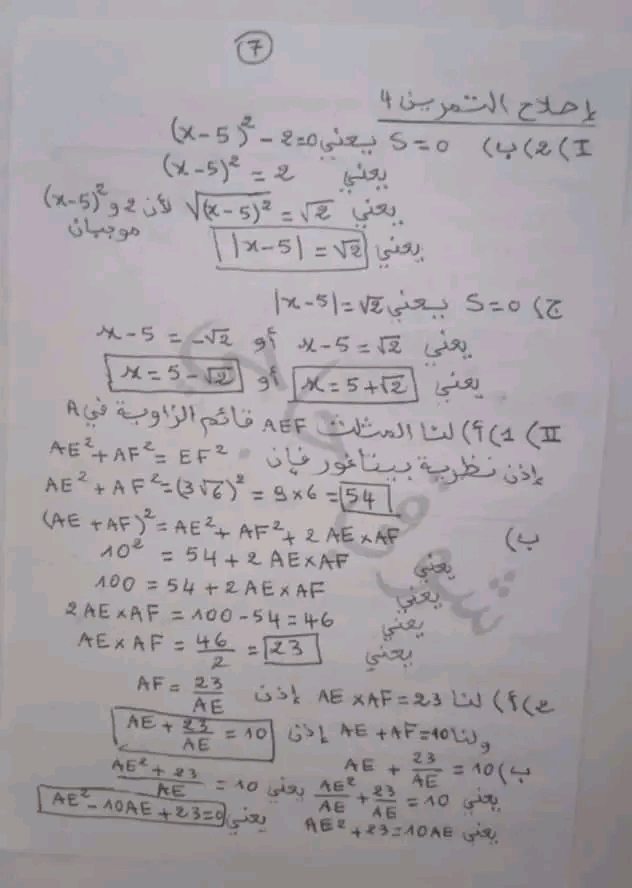 7
إصلاح التمرين 4
I) 2) ب) S=0 يعني (x-5)² - 2=0
يعني (x-5)² = 2
يعني √(x-5)² = √2 لأن 2 و (x-5)²
موجبان
يعني |x-5| = √2
ج) S=0 يعني |x-5| = √2
يعني x-5 = √2 أو x-5 = -√2
يعني x = 5+√2 أو x = 5-√2
II) 1) أ) لنا المثلث AEF قائم الزاوية في A
إذن نظرية بيتاغور فإن AE² + AF² = EF²
AE² + AF² = (3√6)² = 9×6 = 54
ب) (AE + AF)² = AE² + AF² + 2 AE×AF
يعني 10² = 54 + 2 AE×AF
يعني 100 = 54 + 2 AE×AF
يعني 2 AE×AF = 100 - 54 = 46
يعني AE×AF = 46/2 = 23
2) أ) لنا AE×AF = 23 إذن AF = 23/AE
ولنا AE + AF = 10 إذن AE + 23/AE = 10
ب) AE + 23/AE = 10
يعني AE²/AE + 23/AE = 10 يعني (AE² + 23)/AE = 10
يعني AE² + 23 = 10AE يعني AE² - 10AE + 23 = 0
شوقي